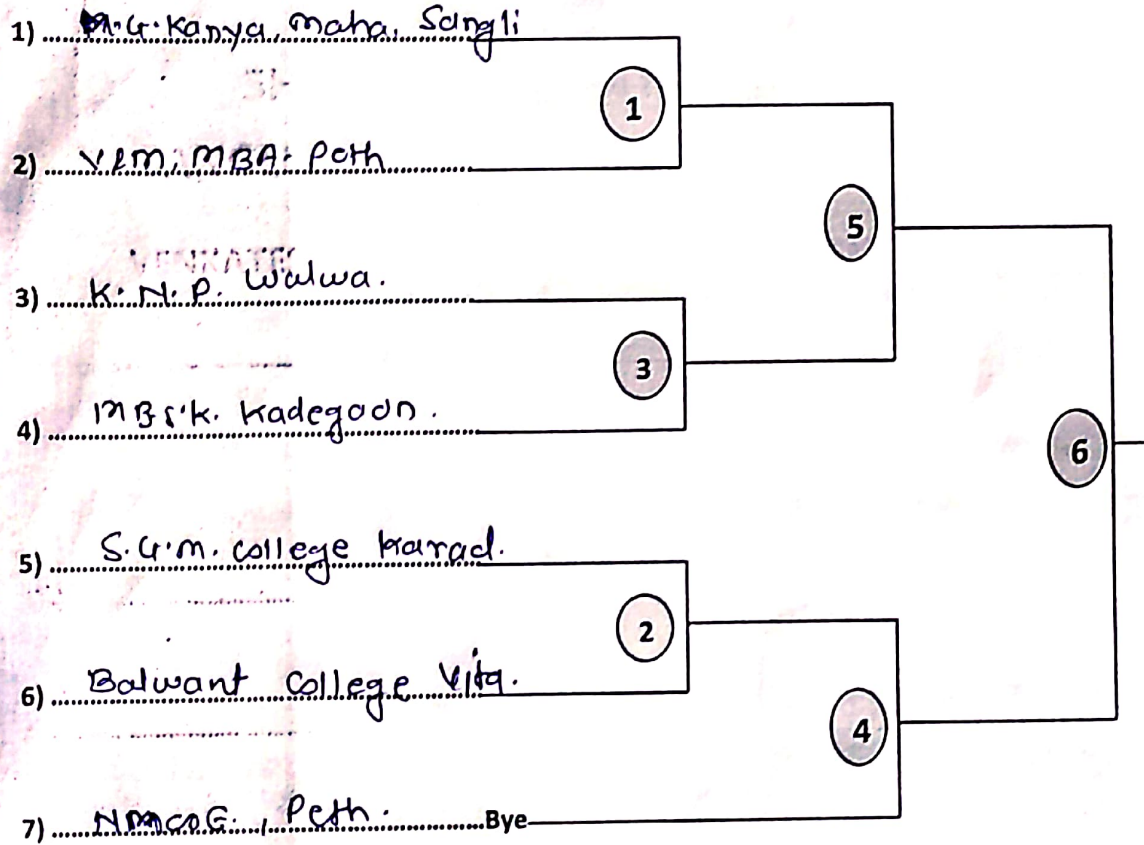 1) M.G. Kanya, Maha, Sangli
1
2) V.P.M; MBA: Peth
5
3) K.N.P. Walwa.
3
4) M B S.K. Kadegaon.
6
5) S.G.M. college Karad.
2
6) Balwant College Vita.
4
7) NMCOE, Peth. Bye